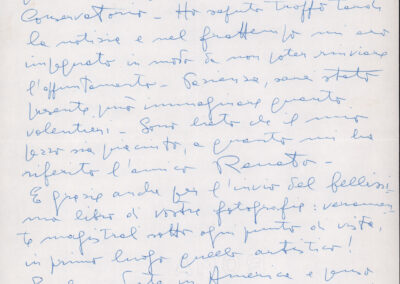 Conservatorio - Ho saputo troppo tardi
la notizia e nel frattempo mi ero
impegnato in modo da non poter rinviare
l'appuntamento - Pazienza, sarei stato
presente può immaginare quanto
volentieri - Sono lieto che il mio
pezzo sia piaciuto, a quanto mi ha
riferito l'amico Renato -
E grazie anche per l'invio del bellissi-
mo libro di vostre fotografie: veramen-
te magistrali sotto ogni punto di vista,
in primo luogo quello artistico!
in America e penso